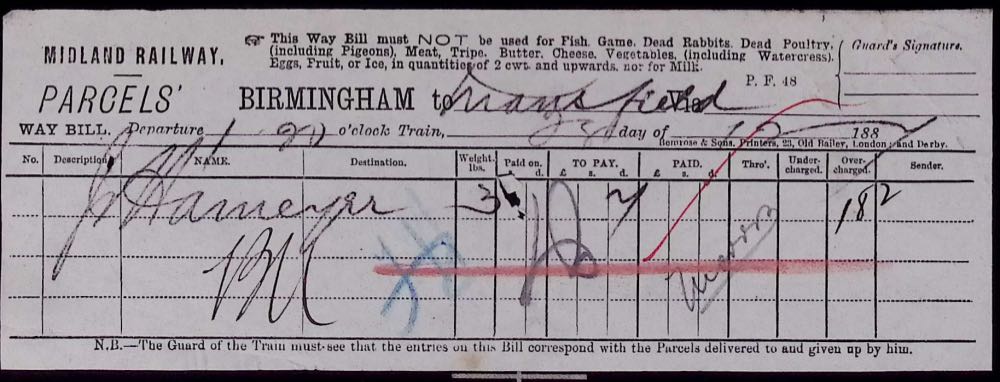 ☞ This Way Bill must NOT be used for Fish, Game, Dead Rabbits, Dead Poultry,
(including Pigeons), Meat, Tripe, Butter, Cheese, Vegetables, (including Watercress),
Eggs, Fruit, or Ice, in quantities of 2 cwt. and upwards, nor for Milk.
Guard's Signature.
MIDLAND RAILWAY.
P. F. 48
PARCELS' BIRMINGHAM to Mansfield Via
WAY BILL. Departure 1 20 o'clock Train, day of 188
Bemrose & Sons, Printers, 23, Old Bailey, London; and Derby.
No. Description NAME. Destination. Weight. lbs. Paid on. d. TO PAY. £ s. d. PAID. £ s. d. Thro'. Under-charged. Over-charged. Sender.
3 7 182
N.B.—The Guard of the Train must see that the entries on this Bill correspond with the Parcels delivered to and given up by him.